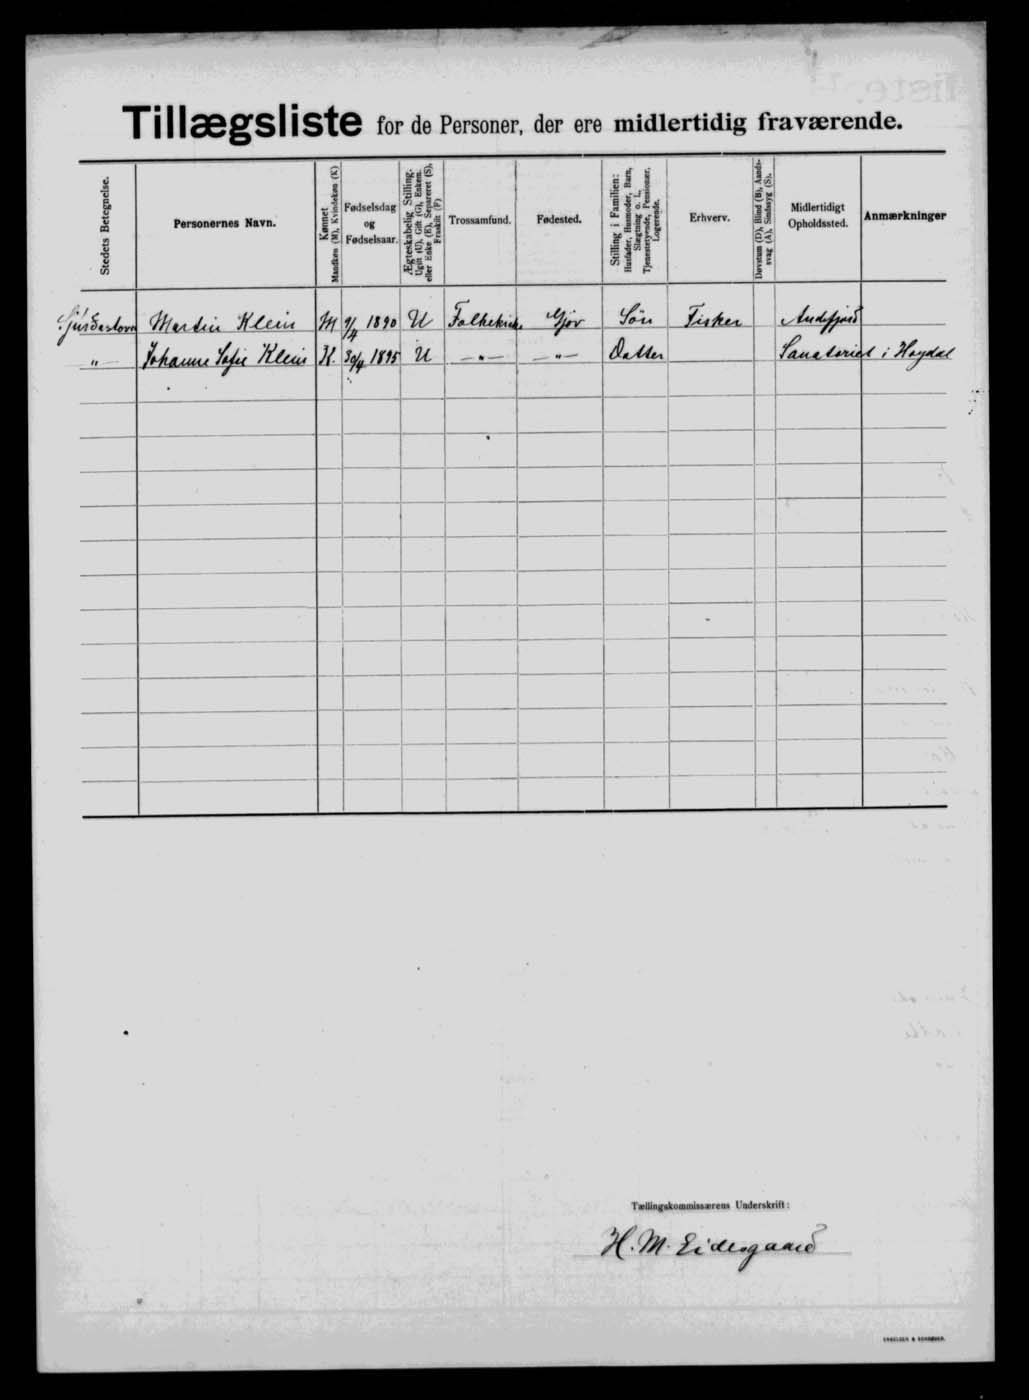 Tillægsliste for de Personer, der ere midlertidig fraværende.
Stedets Betegnelse.
Personernes Navn.
Kønnet
Mandkøn (M), Kvindekøn (K)
Fødselsdag
og
Fødselsaar.
Ægteskabelig Stilling.
Ugift (U), Gift (G), Enkem.
eller Enke (E), Separeret (S),
Fraskilt (F)
Trossamfund.
Fødested.
Stilling i Familien:
Husfader, Husmoder, Barn,
Slægtning o. l.,
Tjenestetyende, Pensionær,
Logerende.
Erhverv.
Døvstum (D), Blind (B), Aands-
svag (A), Sindssyg (S).
Midlertidigt
Opholdssted.
Anmærkninger
Martin Klein M 9/4 1890 U Folkekirke Gjov Sön Fisker Andefjord
„ Johanne Sofie Klein K. 30/4 1895 U — „ — — „ — Datter Sanatoriet i Hoydal
Tællingskommissærens Underskrift:
H. M. Eidesgaard